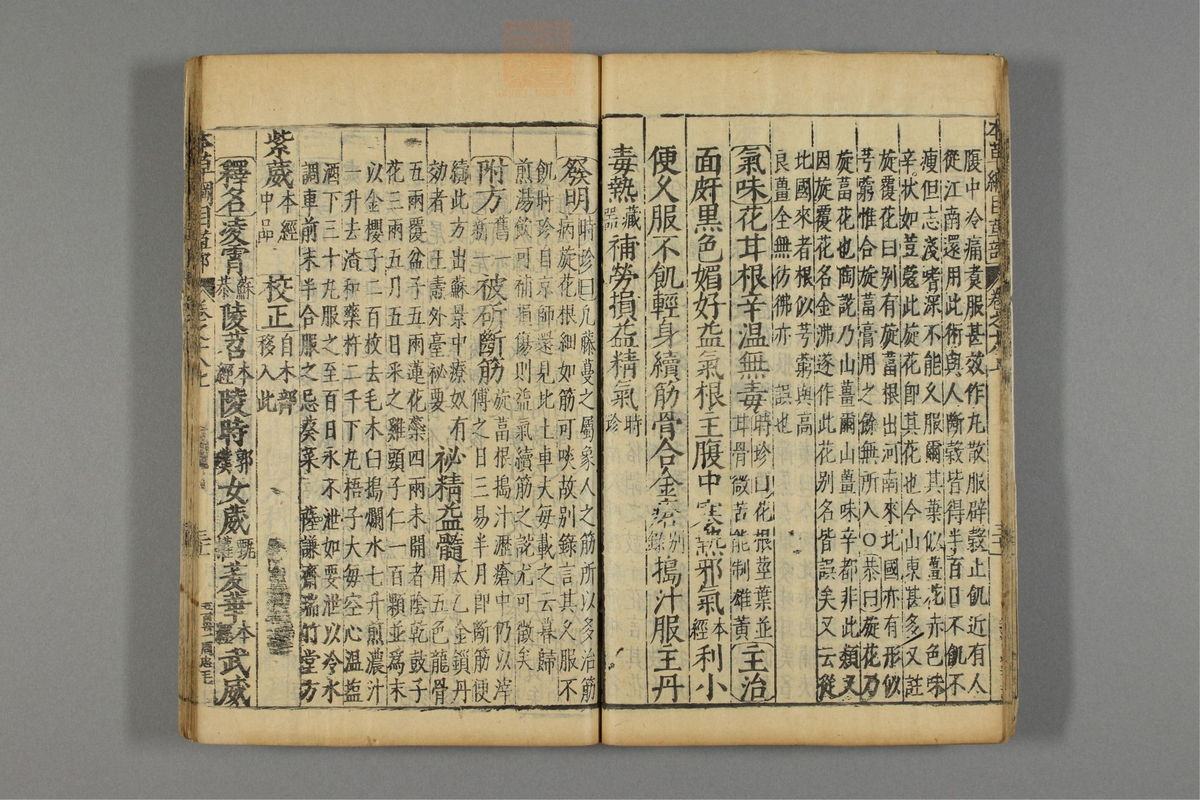 腹中冷痛煑服甚效作丸散服辟穀止飢近有人
從江南還用此術與人斷穀皆得半百日不飢不
瘦但志淺嗜深不能久服爾其葉似薑花赤色味
辛狀如荳蔻此旋花卽其花也今山東甚多又註
旋覆花曰别有旋葍根出河南來此國亦有形似
芎藭惟合旋葍膏用之餘無所入〇恭曰旋花乃
旋葍花也陶說乃山薑爾山薑味辛都非此類又
因旋覆花名金沸遂作此花别名皆誤矣又云從
北國來者根似芎藭與高
良薑全無彷彿亦誤也
氣味花耳根辛温無毒時珍曰花根莖葉並
耳骨微苦能制雄黄主治
面皯黒色媚好益氣根主腹中寒熱邪氣本經利小
便久服不飢輕身續筋骨合金瘡别録搗汁服主丹
毒熱藏器補勞損益精氣時珍
發明時珍曰凡藤蔓之屬象人之筋所以多治筋
病旋花根細如筋可啖故别錄言其久服不
飢時珍自京師還見北土車夫每載之云暮歸
煎湯飲可補損傷則益氣續筋之說尤可徵矣
附方舊一新一被斫斷筋旋葍根搗汁瀝瘡中仍以滓
傅之日三易半月卽斷筋便
續此方出蘇景中療奴有
效者王燾外臺祕要祕精益髓太乙金鎖丹
用五色龍骨
五兩覆盆子五兩蓮花蘂四兩未開者陰乾鼓子
花三兩五月五日采之雞頭子仁一百顆並爲末
以金櫻子二百枚去毛木臼搗爛水七升煎濃汁
一升去渣和藥杵二千下丸梧子大每空心温鹽
酒下三十丸服之至百日永不泄如要泄以冷水
調車前末半合服之忌葵菜薩謙齋瑞竹堂方
紫葳本經中品校正自木部移入此
釋名凌霄蘇恭陵苕本經陵時郭璞女葳甄權茇華本經武威
本草綱目草部 卷之十八上
本草綱目草部 卷之十八上